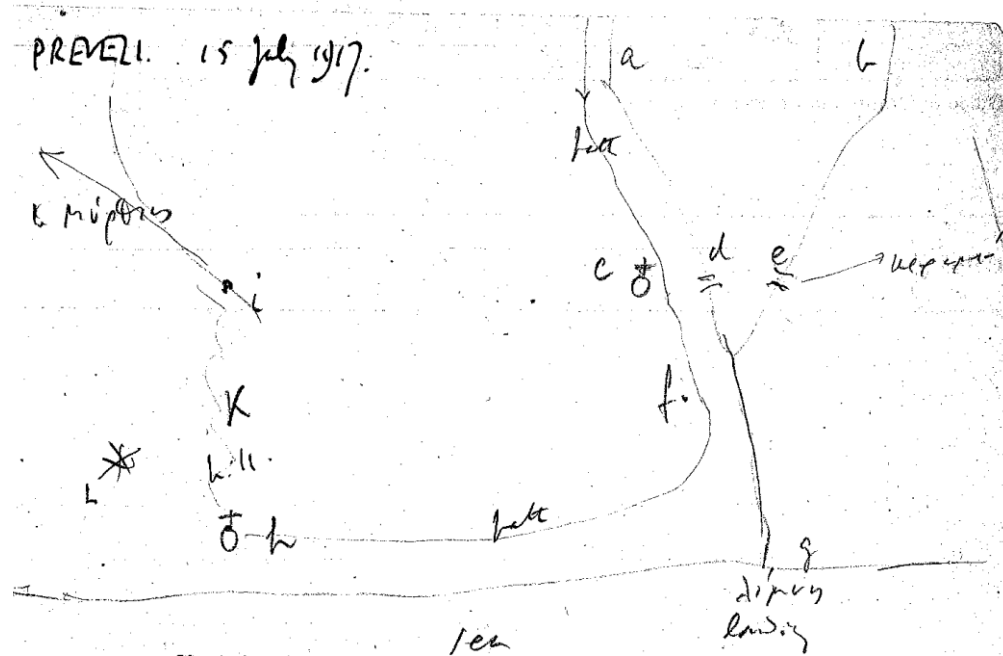 PREVELI. 15 July 1917.
a
b
path
κ Μύρθιος
c
d
e
i
f.
K
hill.
L
h
path
g
λίμνη
landing
sea